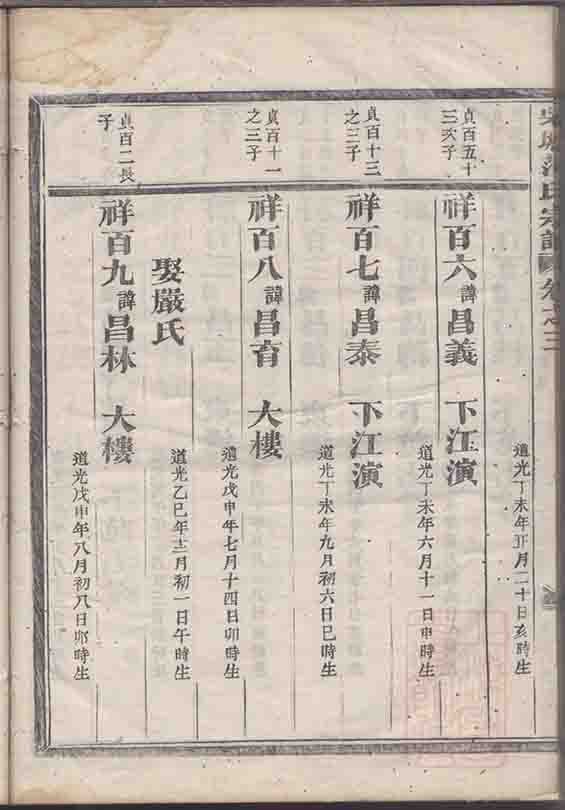 氏宗譜 卷之三
道光丁未年正月二十日亥時生
貞百五十三次子
祥百六 諱昌義 下江演
道光丁未年六月十一日申時生
貞百十三之三子
祥百七 諱昌泰 下江演
道光丁未年九月初六日巳時生
貞百十一之三子
祥百八 諱昌育 大樓
道光戊申年七月十四日卯時生
娶嚴氏
道光乙巳年十二月初一日午時生
貞百二長子
祥百九 諱昌林 大樓
道光戊申年八月初八日卯時生